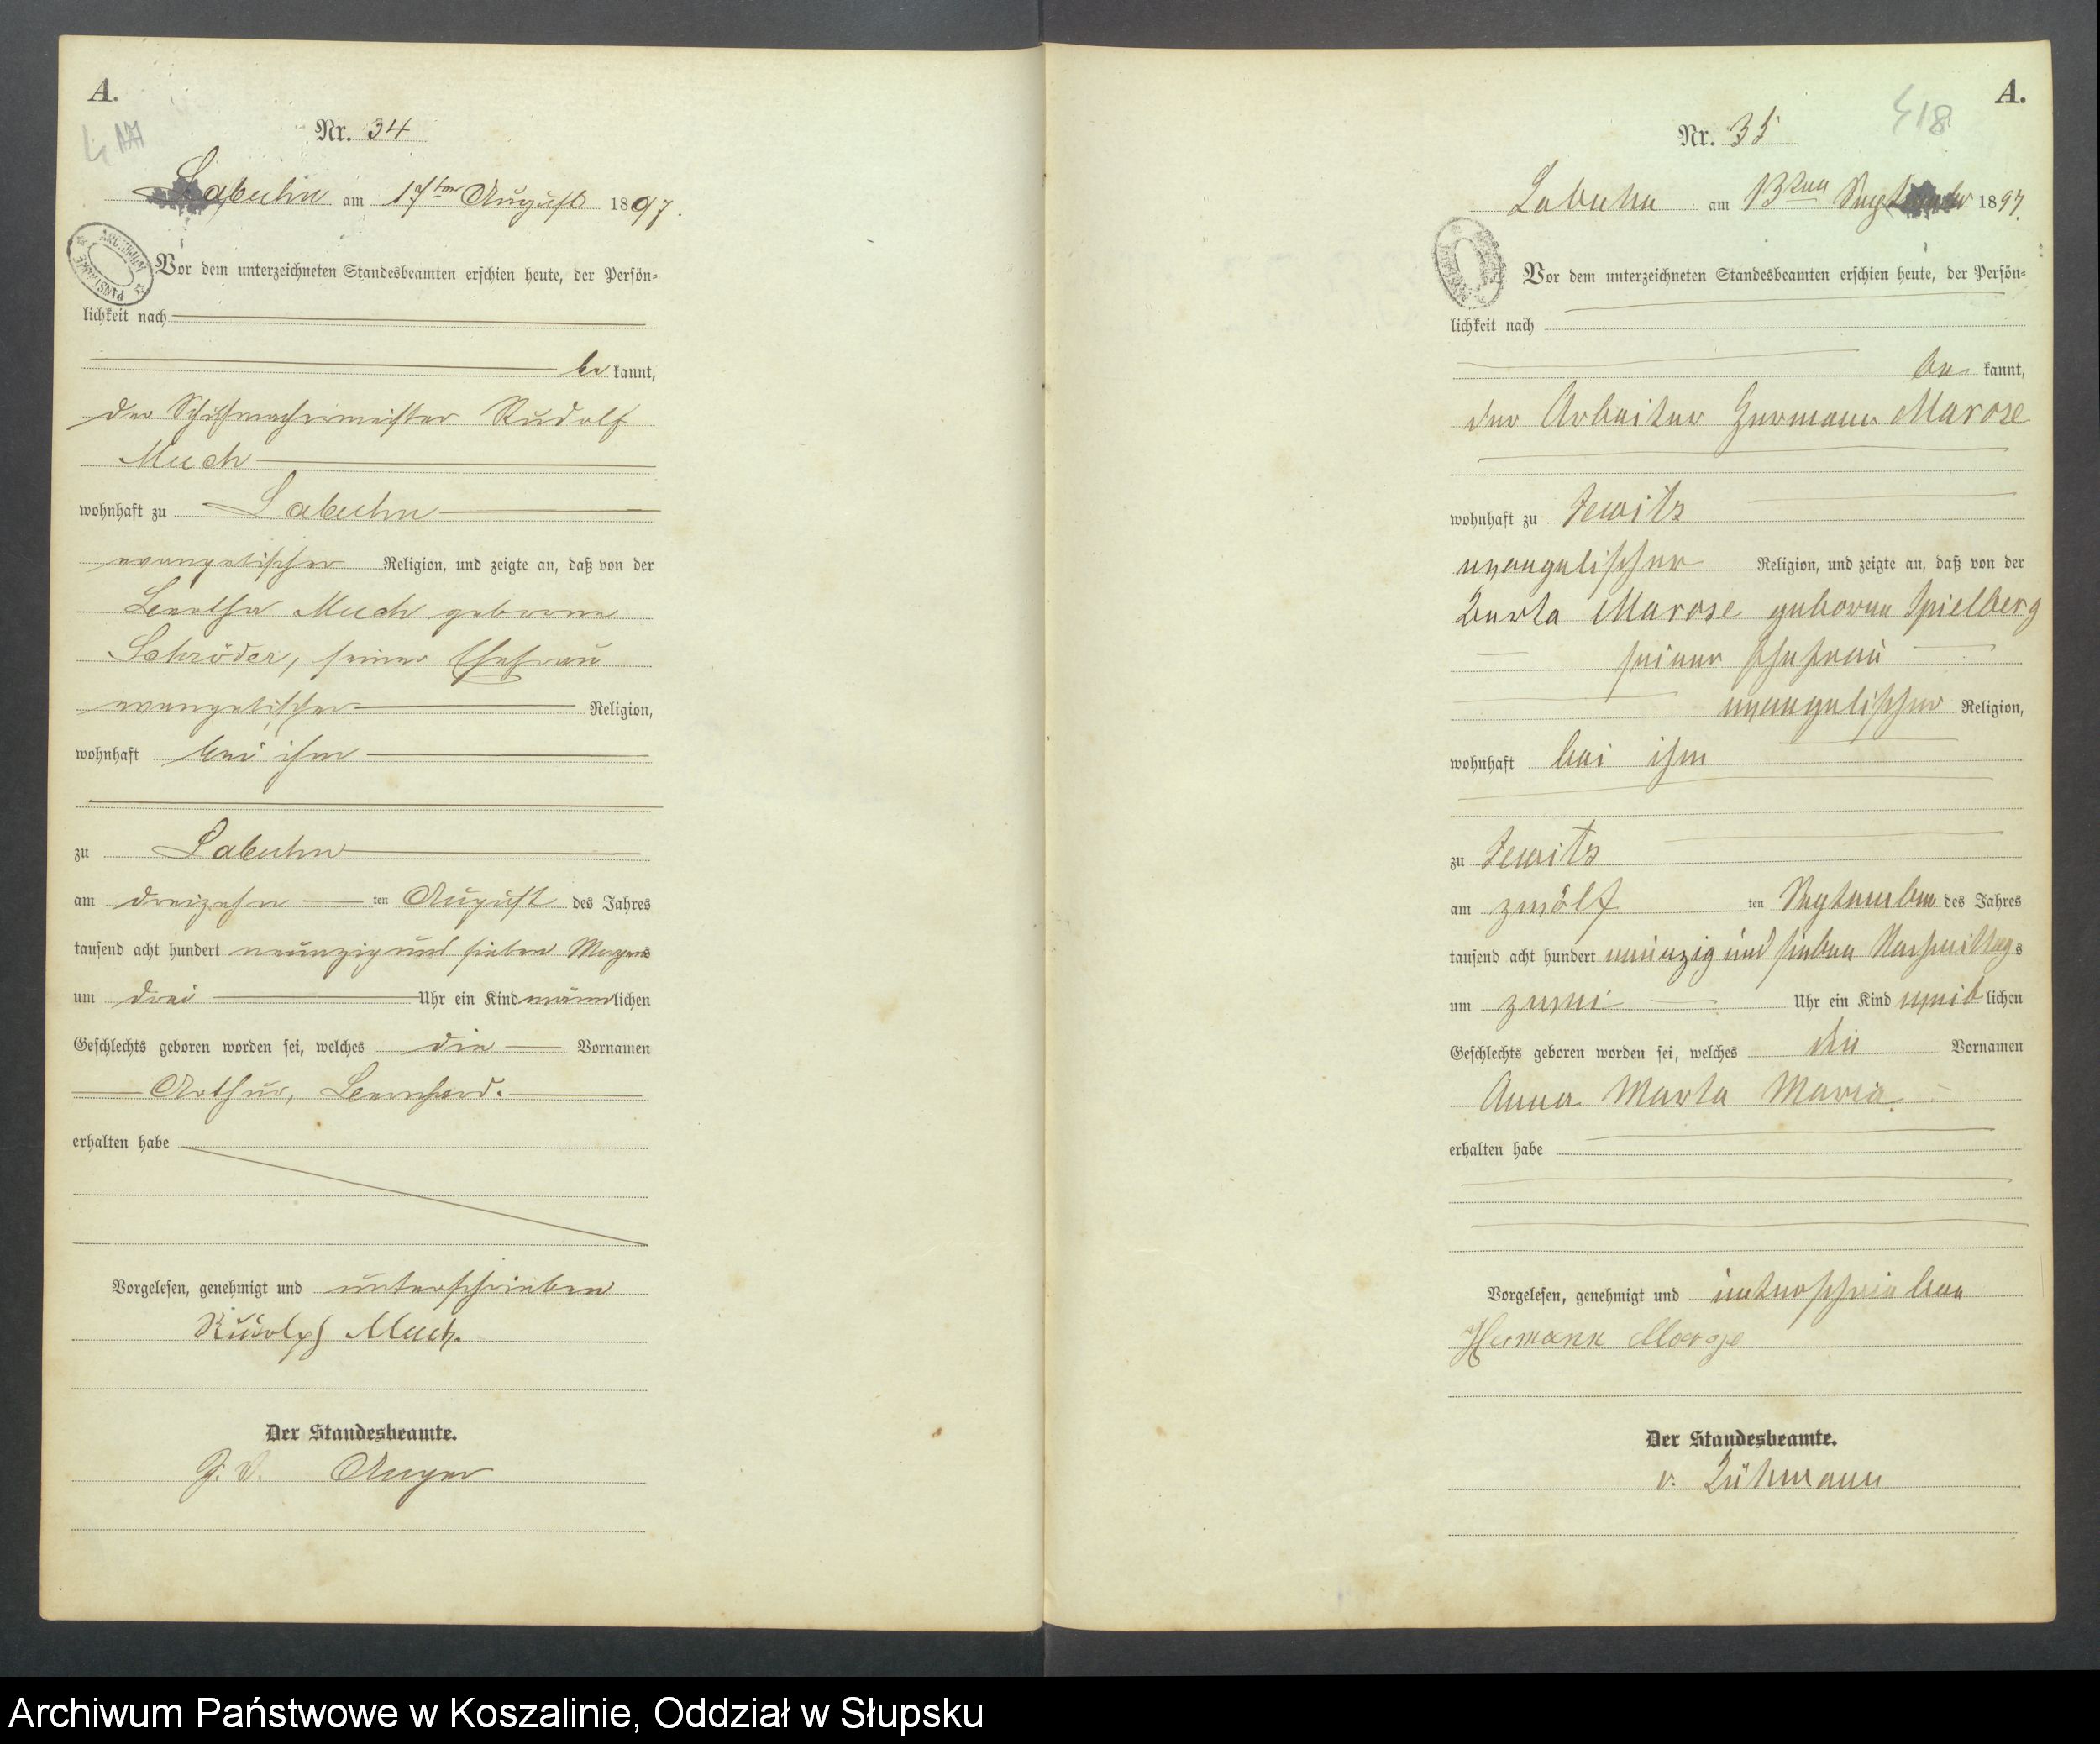 A.
Nr. 34
Labuhn am 17ten August 1897.
ARCHIWUM PAŃSTWOWE
Vor dem unterzeichneten Standesbeamten erschien heute, der Persön=
lichkeit nach
be kannt,
der Schuhmachermeister Rudolf
Much
wohnhaft zu Labuhn
evangelischer Religion, und zeigte an, daß von der
Bertha Much geborene
Schröder, seiner Ehefrau
evangelischer Religion,
wohnhaft bei ihm
zu Labuhn
am dreizehn ten August des Jahres
tausend acht hundert neunzig und sieben Morgens
um drei Uhr ein Kind männlichen
Geschlechts geboren worden sei, welches die Vornamen
Arthur, Bernhard.
erhalten habe
Vorgelesen, genehmigt und unterschrieben
Rudolph Much.
Der Standesbeamte.
J. V.
A.
418
Nr. 35
Labuhn am 13ten September 1897.
Vor dem unterzeichneten Standesbeamten erschien heute, der Persön=
lichkeit nach
be kannt,
der Arbeiter Hermann Marose
wohnhaft zu Jewitz
evangelischer Religion, und zeigte an, daß von der
Berta Marose geborene Spielberg
seiner Ehefrau
evangelischer Religion,
wohnhaft bei ihm
zu Jewitz
am zwölf ten September des Jahres
tausend acht hundert neunzig und sieben Nachmittags
um zwei Uhr ein Kind weiblichen
Geschlechts geboren worden sei, welches die Vornamen
Anna Marta Maria.
erhalten habe
Vorgelesen, genehmigt und unterschrieben
Hermann Marose
Der Standesbeamte.
Archiwum Państwowe w Koszalinie, Oddział w Słupsku